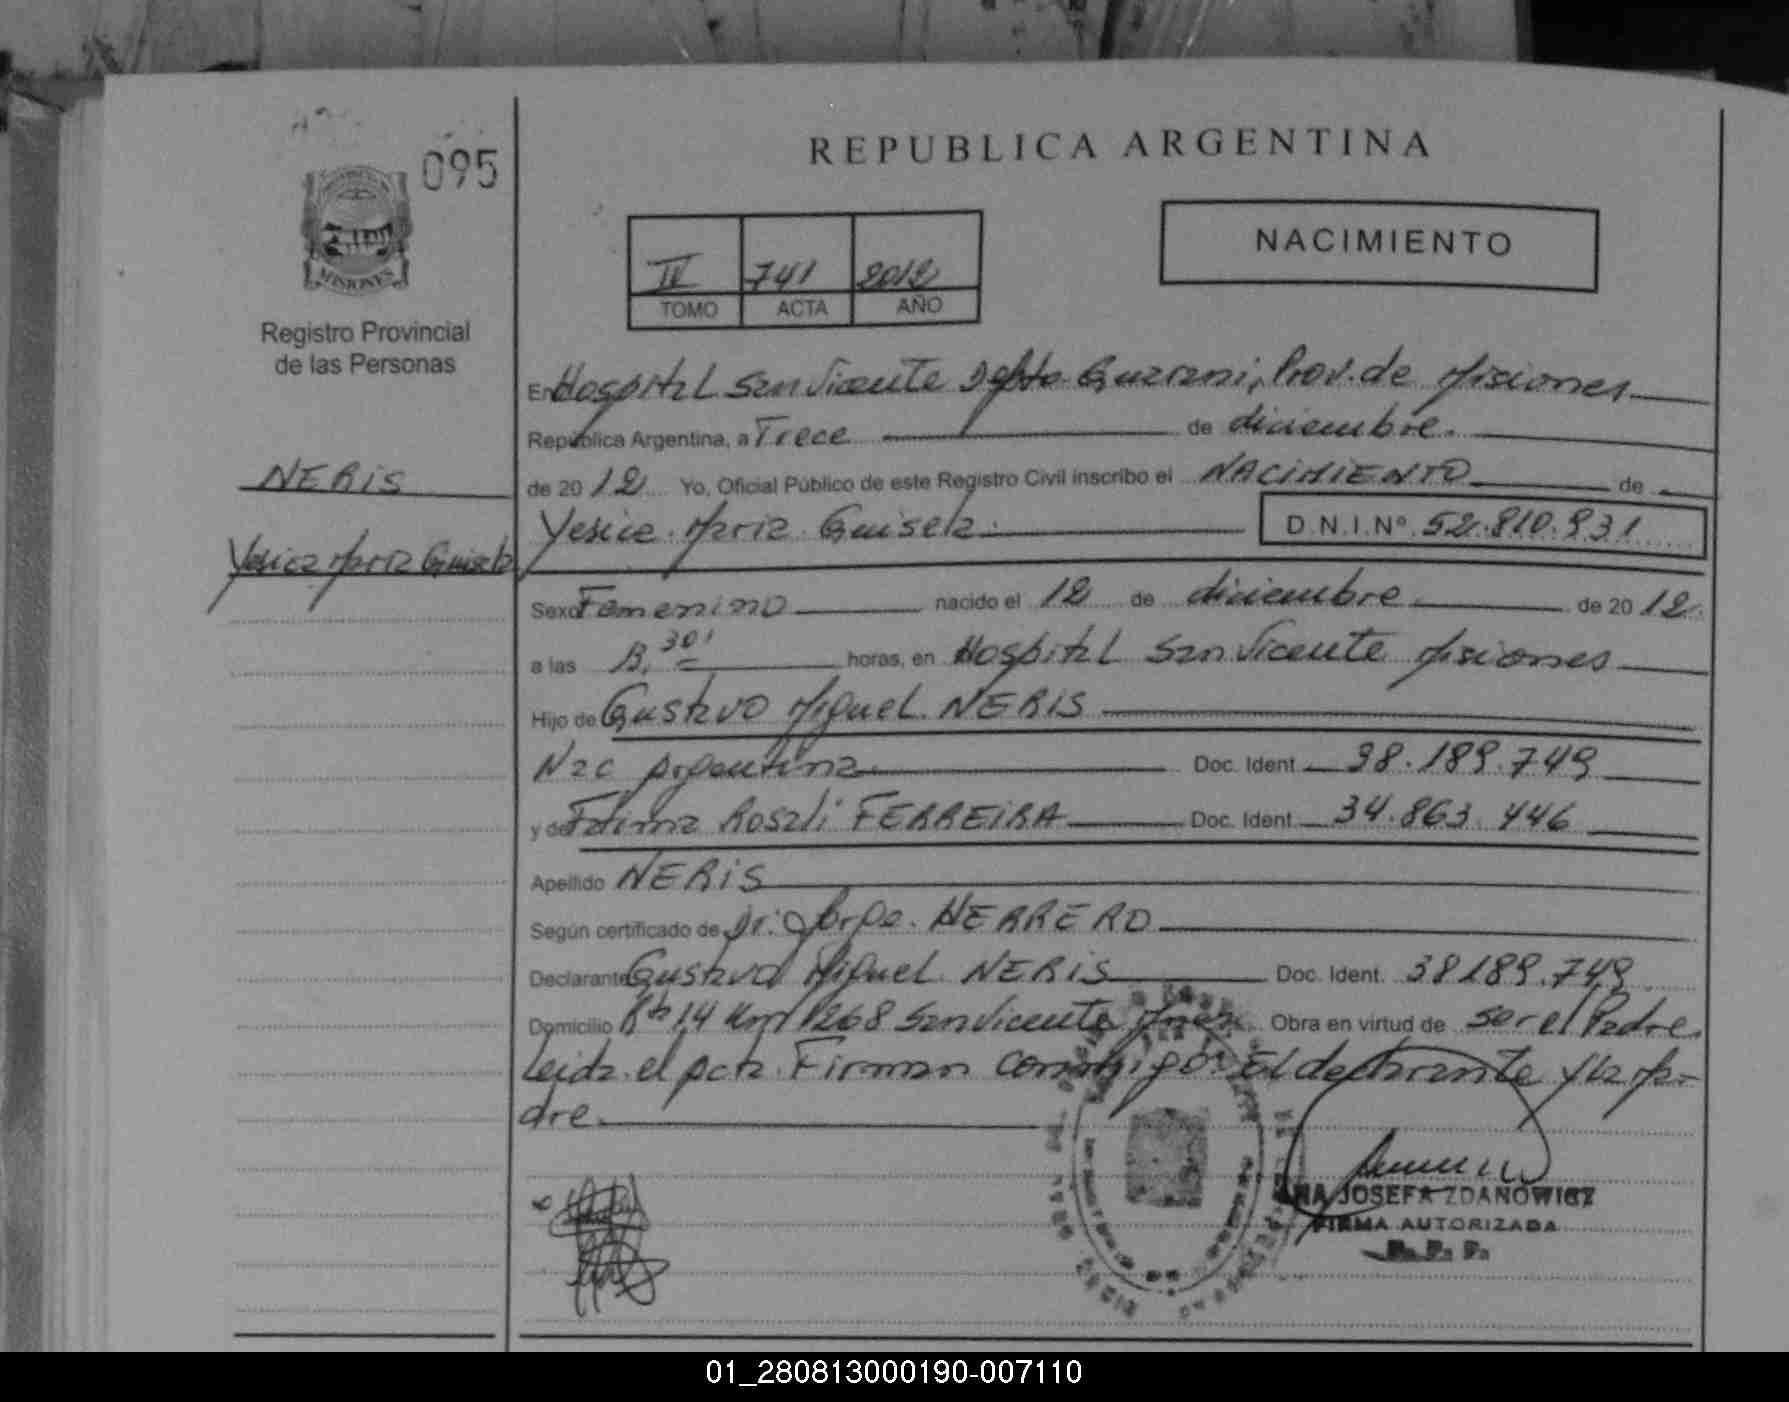 095
MISIONES
Registro Provincial
de las Personas
NERIS
Yesica Maria Guisela
REPUBLICA ARGENTINA
NACIMIENTO
IV 741 2012
TOMO ACTA AÑO
En Hospital San Vicente Depto Guarani, Prov. de Misiones
República Argentina, a Trece de diciembre.
de 2012 Yo, Oficial Público de este Registro Civil inscribo el NACIMIENTO de
Yesica Maria Guisela D.N.I.Nº 52.810.931
Sexo Femenino nacido el 12 de diciembre de 2012.
a las 30' horas, en Hospital San Vicente Misiones
Hijo de Gustavo Miguel NERIS
Nac Argentina Doc. Ident. 38.189.749
y de Fatima Rosali FERREIRA Doc. Ident. 34.863.446
Apellido NERIS
Según certificado de Dr. Jorge HERRERO
Declarante Gustavo Miguel NERIS Doc. Ident. 38189.749
Domicilio 14 Km 1268 San Vicente Mnes. Obra en virtud de ser el Padre
Leida el acta Firman conmigo: El declarante y la Ma-
dre.
JOSEFA ZDANOWICZ
FIRMA AUTORIZADA
R. P. P.
01_280813000190-007110